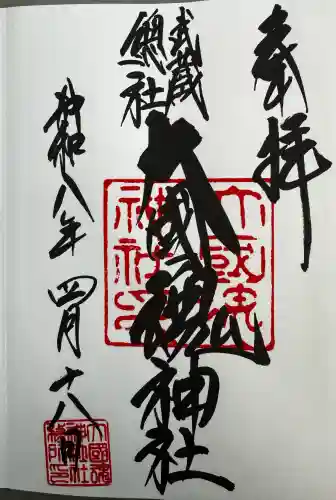 奉拝
武蔵
総社
大國魂神社
大國魂
神社印
令和八年四月十八日
大國魂
神社社
務所印